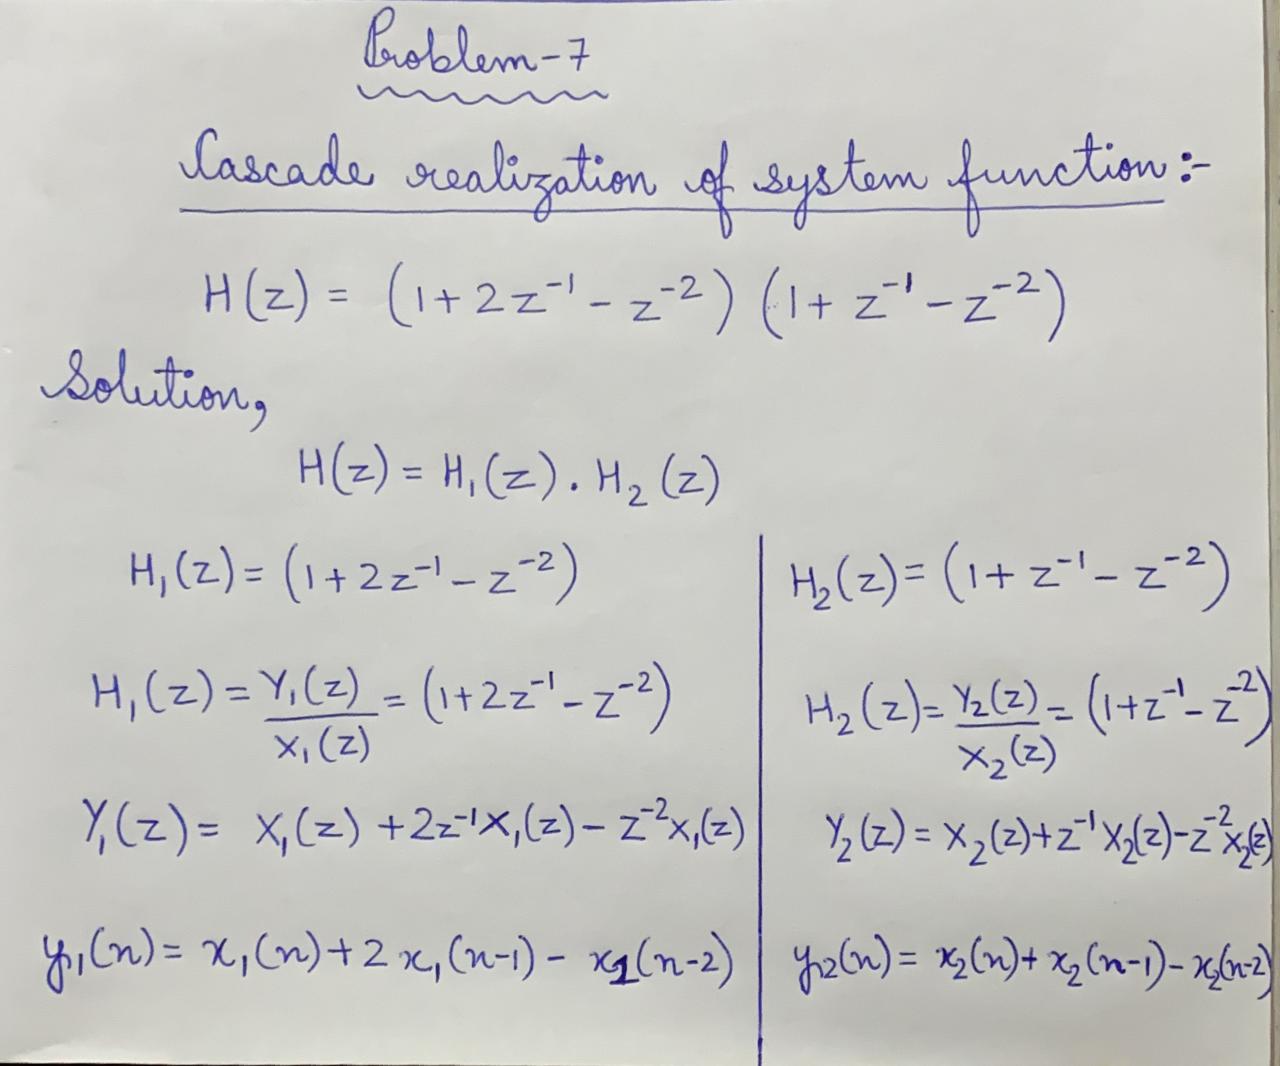 Problem-7
Cascade realization of system function:-
H(z) = (1+2z⁻¹-z⁻²) (1+z⁻¹-z⁻²)
Solution,
H(z) = H₁(z) . H₂(z)
H₁(z) = (1+2z⁻¹-z⁻²)
H₁(z) = Y₁(z)/X₁(z) = (1+2z⁻¹-z⁻²)
Y₁(z) = X₁(z) + 2z⁻¹X₁(z) - z⁻²X₁(z)
y₁(n) = x₁(n) + 2x₁(n-1) - x₁(n-2)
H₂(z) = (1+z⁻¹-z⁻²)
H₂(z) = Y₂(z)/X₂(z) = (1+z⁻¹-z⁻²)
Y₂(z) = X₂(z) + z⁻¹X₂(z) - z⁻²X₂(z)
y₂(n) = x₂(n) + x₂(n-1) - x₂(n-2)